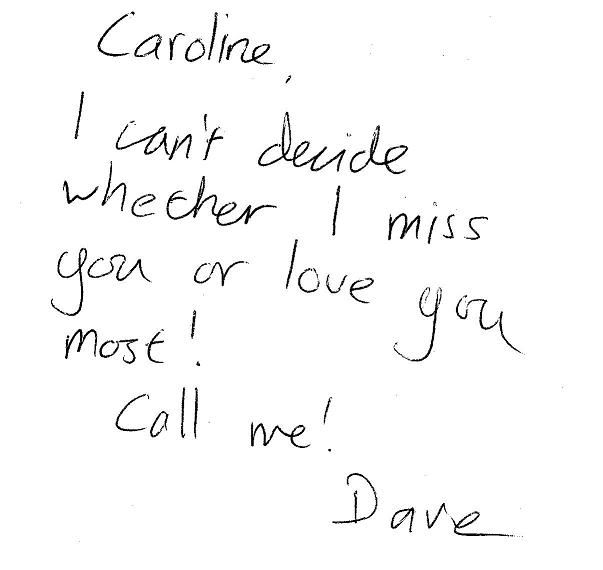 Caroline,
I can't decide
whether I miss
you or love you
most!
Call me!
Dave